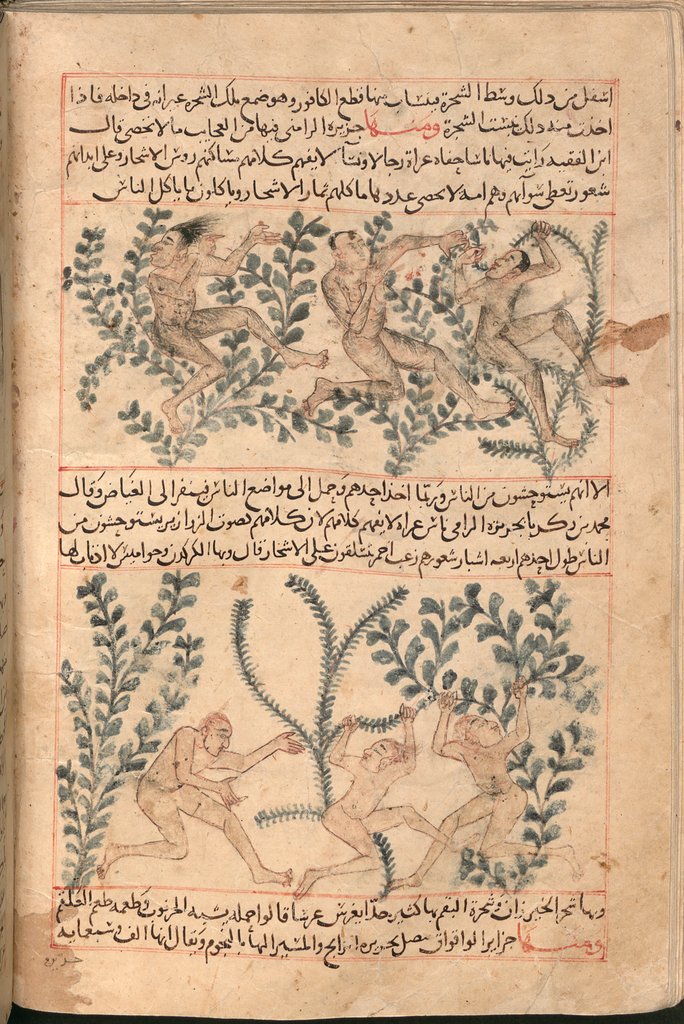 اسفل من ذلك وسط الشجرة فينساب منها قطع الكافور وهو صمغ ملك الشجرة غير انه فى داخله فاذا
اخذت منه ذلك يبست الشجرة ومنها جزيرة الرامنى فيها من العجايب ما لا يحصى قال
ابن الفقيه رايت فيها ناسا حفاة عراة رجالا ونساء لا يفهم كلامهم مساكنهم روس الاشجار وعلى ابدانهم
شعور تغطى سواتهم وهم امة لا يحصى عددها ماكلهم ثمار الاشجار وياكلون ما ياكل الناس
الا انهم يستوحشون من الناس وربما اخذ احدهم وحمل الى مواضع الناس فينفر الى الغياض وقال
محمد بن زكريا بجزيرة الرامى ناس عراة لا يفهم كلامهم لان كلامهم كصوت الزرازير يستوحشون من
الناس طول احدهم اربعة اشبار شعورهم زغب احمر يتسلقون على الاشجار قال وبها الكركدن وجواميس لا اذناب لها
وبها شجر الخيزران وشجرة البقم بها كثير جدا يغرس غرسا قالوا حمله يشبه الخرنوب وطعمه طعم العلقم
ومنها جزاير الواقواق متصل بجزيرة الزانج والمسير اليها بالنجوم ويقال انها الف وسبعماية